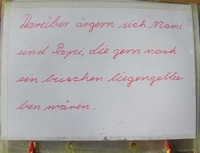 Darüber ärgern sich Mami
und Papi, die gern noch
ein bisschen liegengeblie
ben wären.